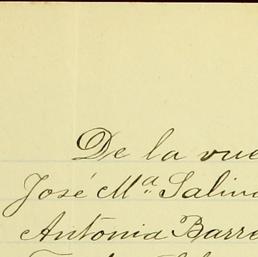 De la vue
José Mª Salina
Antonia Barre